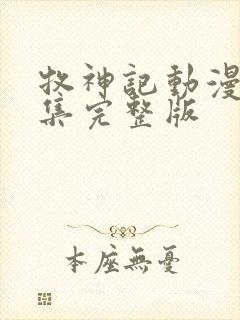 牧神記動漫
集完整版
本座無憂